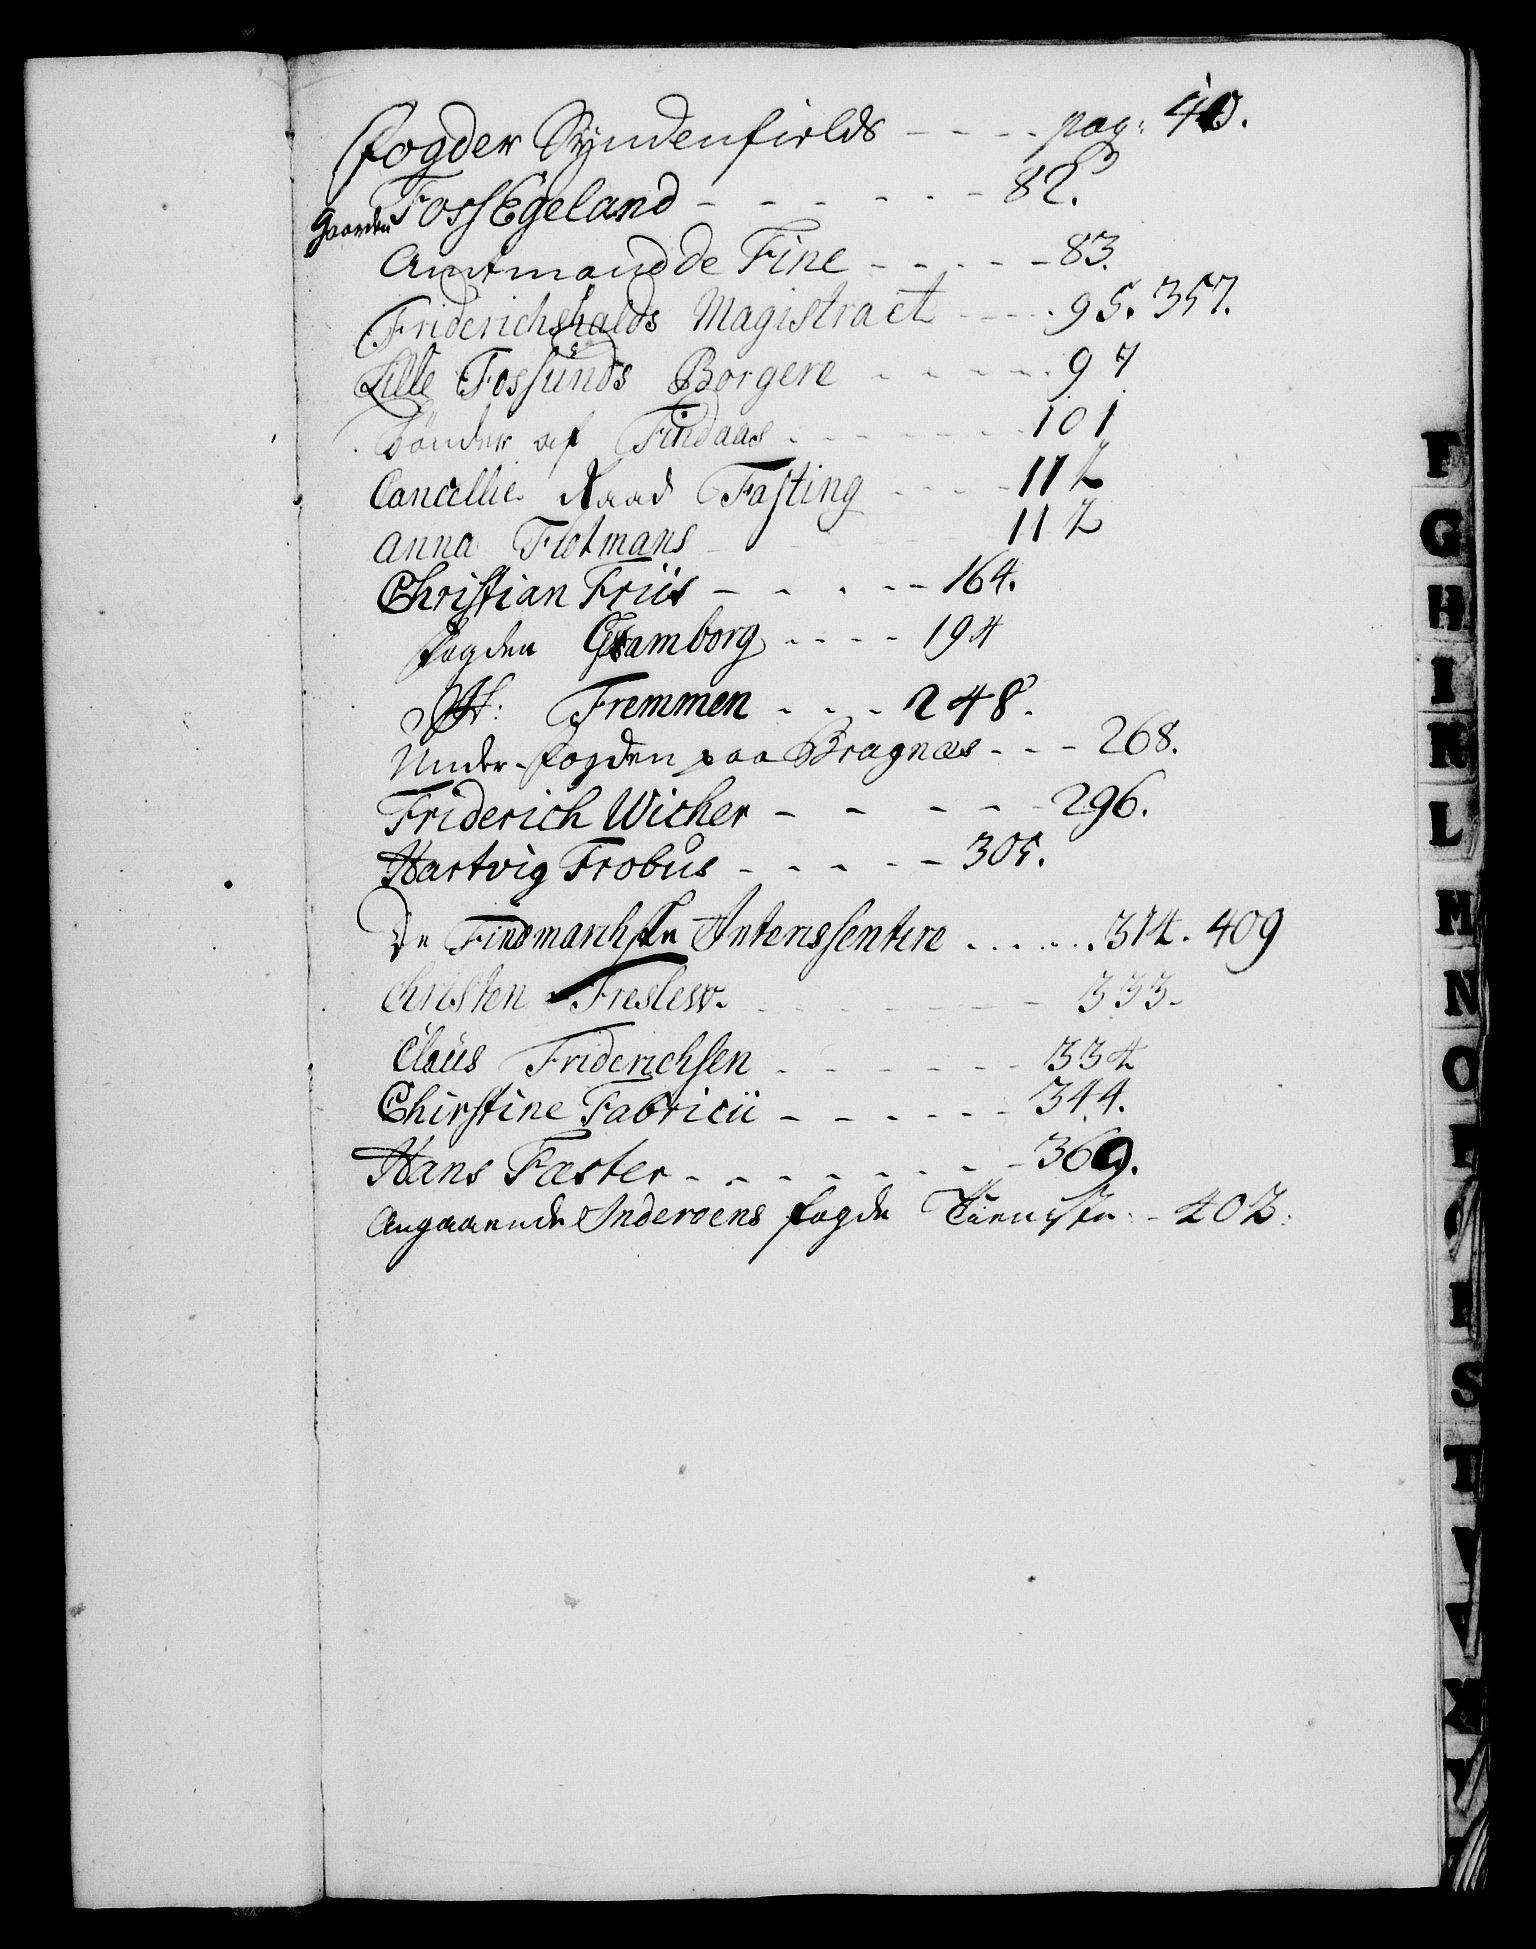 Fogder Syndenfields - - - - pag: 40.
Gaarden FossEgeland - - - - - - 82.
Amtmand de Fine - - - - - 83.
Friderichshalds Magistract - - - . 95. 357.
Lille Fossünds Borgere - - - - - . 97
Bönder af Findaas - - - - - - - 101
Cancellie Raad Fasting - - - - 112
Anna Flotmans - - - - - - 112
Christian Friis - - - - - - 164.
Fogden Gramborg - - - - 194
H: Fremmen - - - 248.
Under-fogden paa Bragnæs - - - 268.
Friderich Wicher - - - - - 296.
Hartvig Frobüs - - - - - - 305.
De Findmarchske Interissentere . . . . . . 314. 409
Christen Freslew. - - - - - - - 333.
Claüs Friderichsen - - - - - - 334
Chirstine Fabricii - - - - - - 344.
Hans Fæster - - - - - - - - 369.
Angaaende Inderoens fogde Tieniste - 403.
F
G
H
I
K
L
M
N
O
P
Q
R
S
T
V
W
X
Y